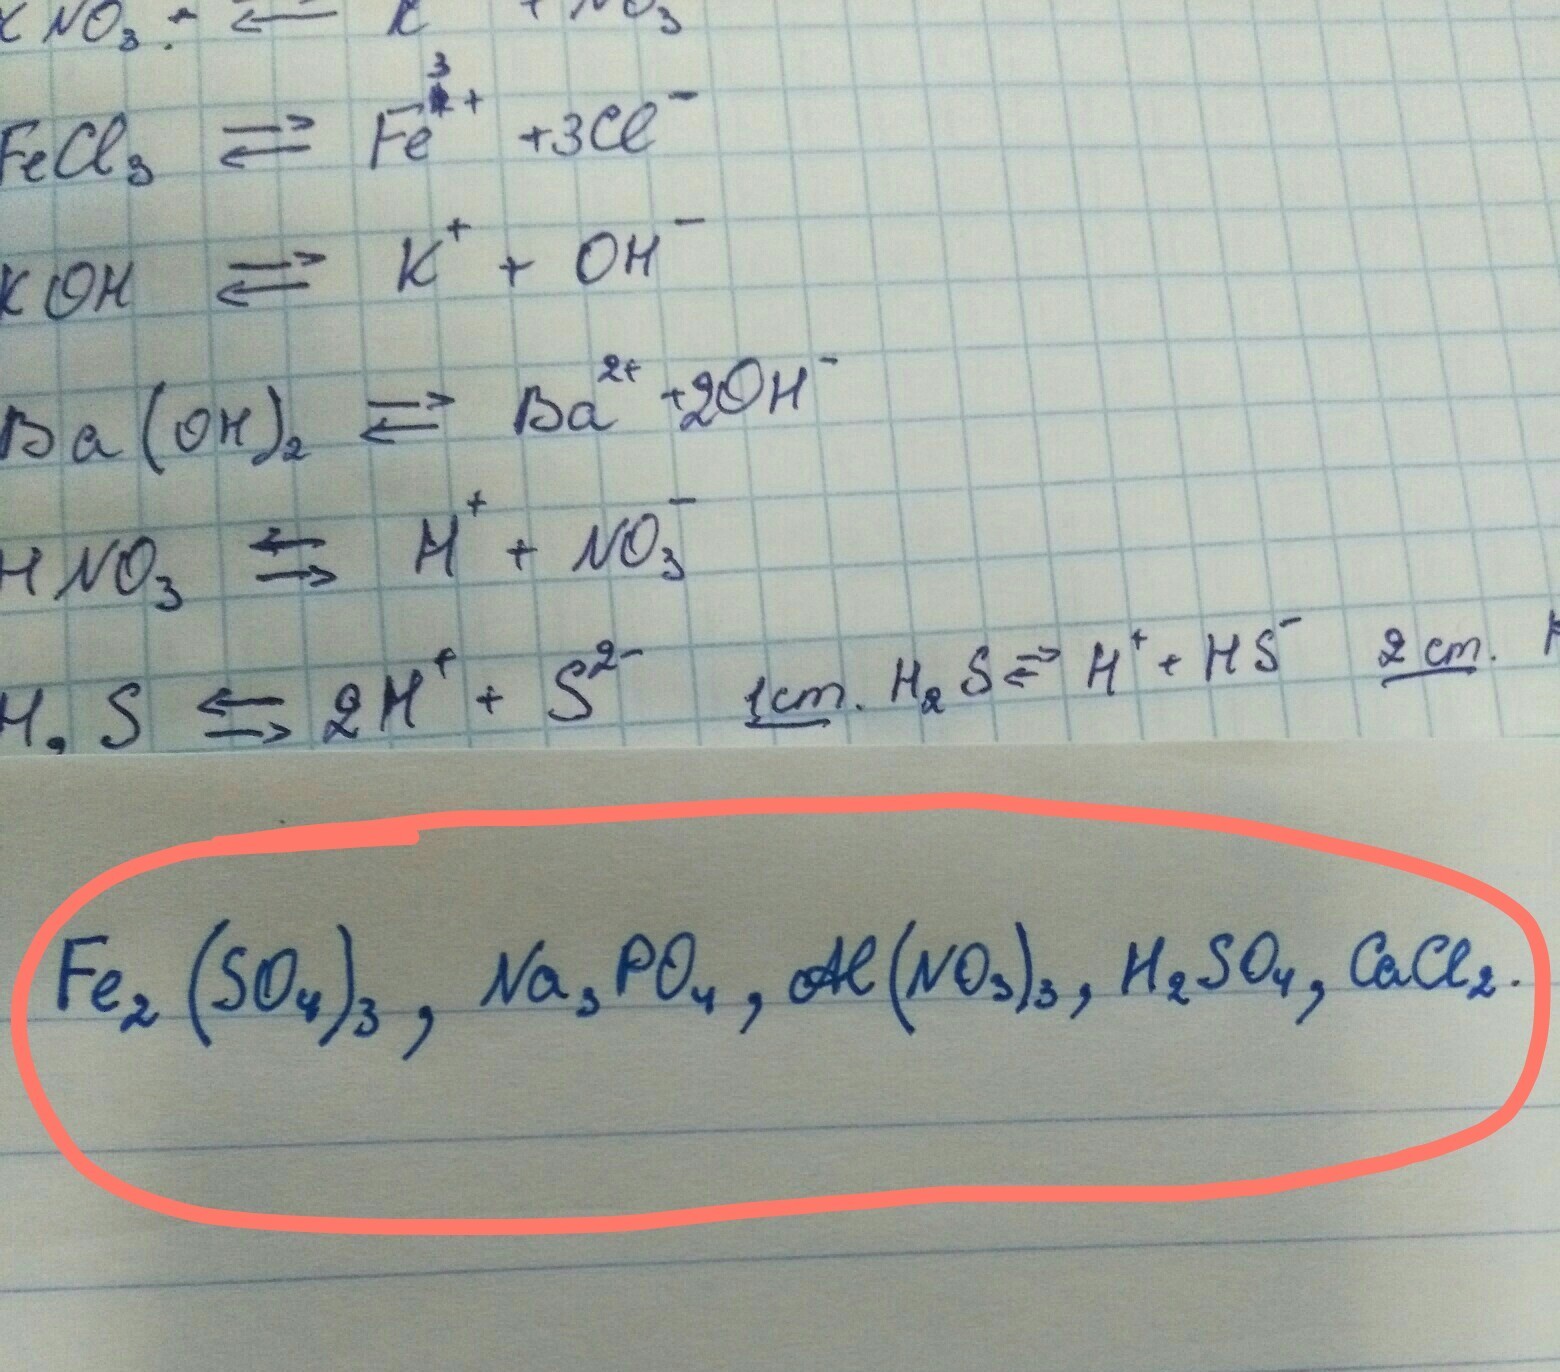 KNO₃ ⇄ K + NO₃
FeCl₃ ⇄ Fe³⁺ + 3Cl⁻
KOH ⇄ K⁺ + OH⁻
Ba(OH)₂ ⇄ Ba²⁺ + 2OH⁻
HNO₃ ⇄ H⁺ + NO₃⁻
H₂S ⇄ 2H⁺ + S²⁻ 1 ст. H₂S ⇄ H⁺ + HS⁻ 2 ст.
Fe₂(SO₄)₃, Na₃PO₄, Al(NO₃)₃, H₂SO₄, CaCl₂.